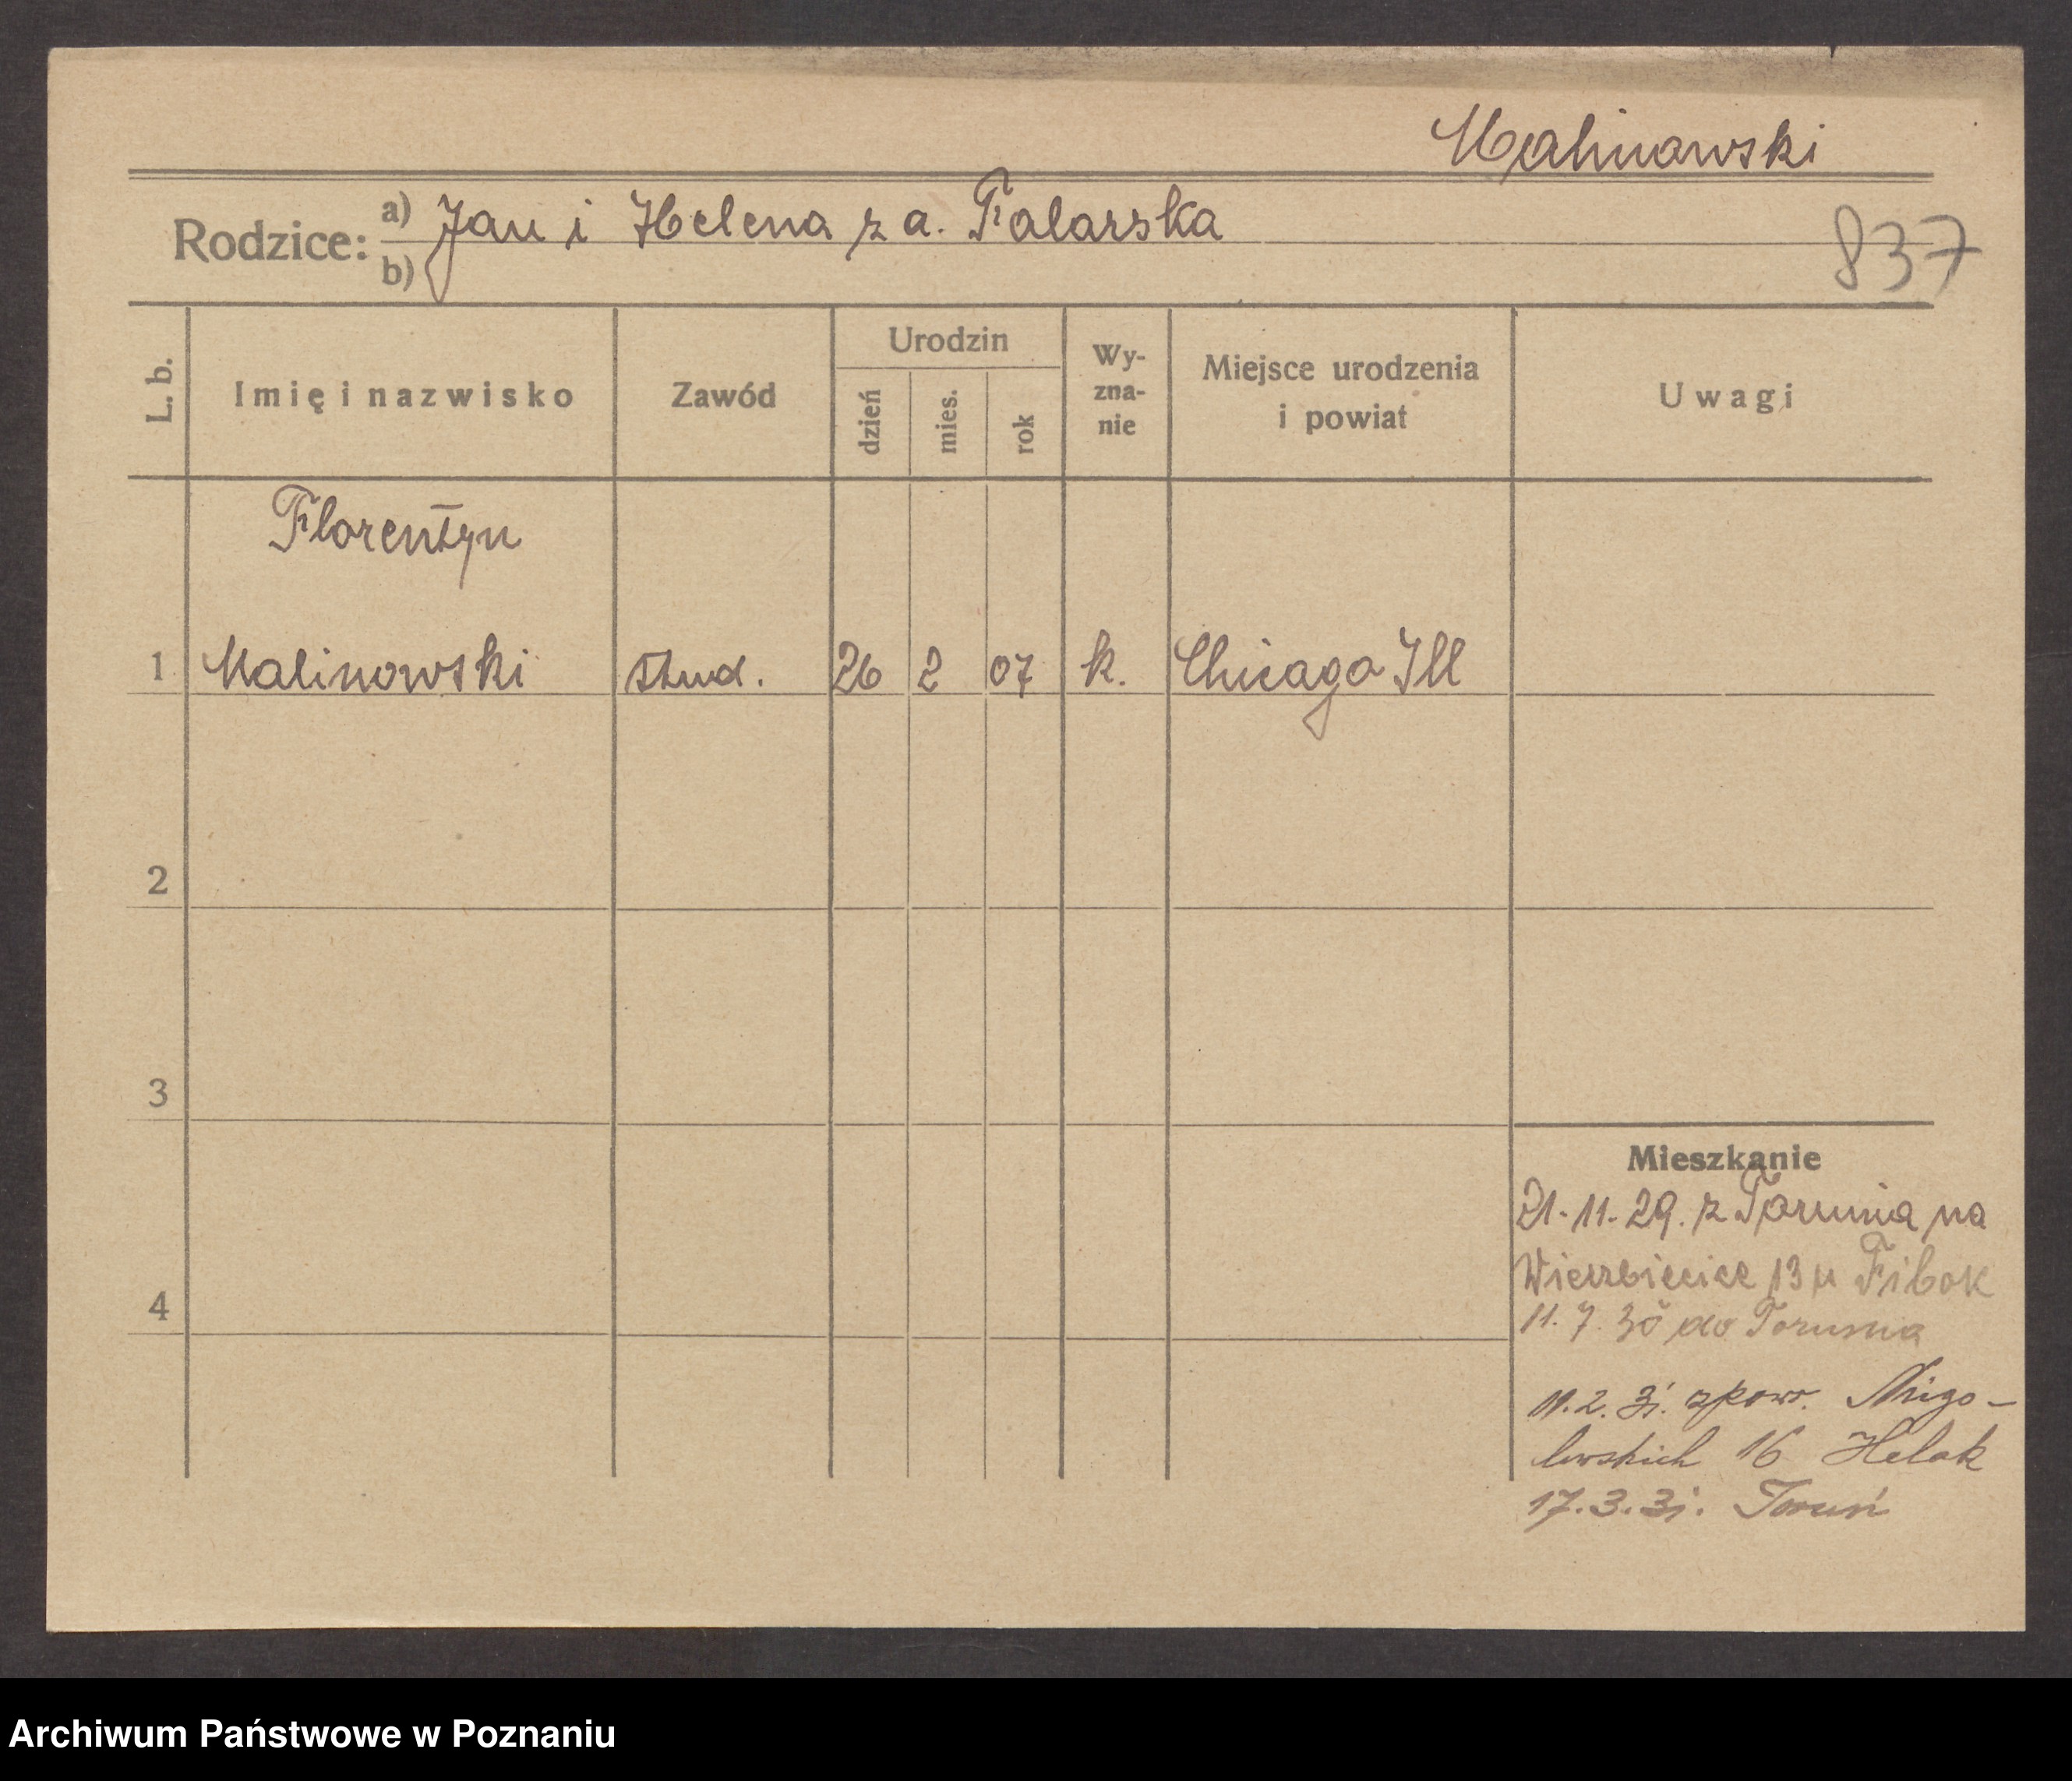 Malinowski
Rodzice: a) Jan i Helena z d. Falarska
b)
837
L. b.
Imię i nazwisko
Zawód
Urodzin
dzień
mies.
rok
Wy-
zna-
nie
Miejsce urodzenia
i powiat
Uwagi
Florentyn
1 Malinowski stud. 26 2 07 k. Chicago Ill
2
3
4
Mieszkanie
21.11.29. z Torunia na
Wierzbięcice 13 u Fibak
11.7.30 do Torunia
11.2.31. zpowr. Niego-
lewskich 16 Helak
17.3.31. Toruń
Archiwum Państwowe w Poznaniu